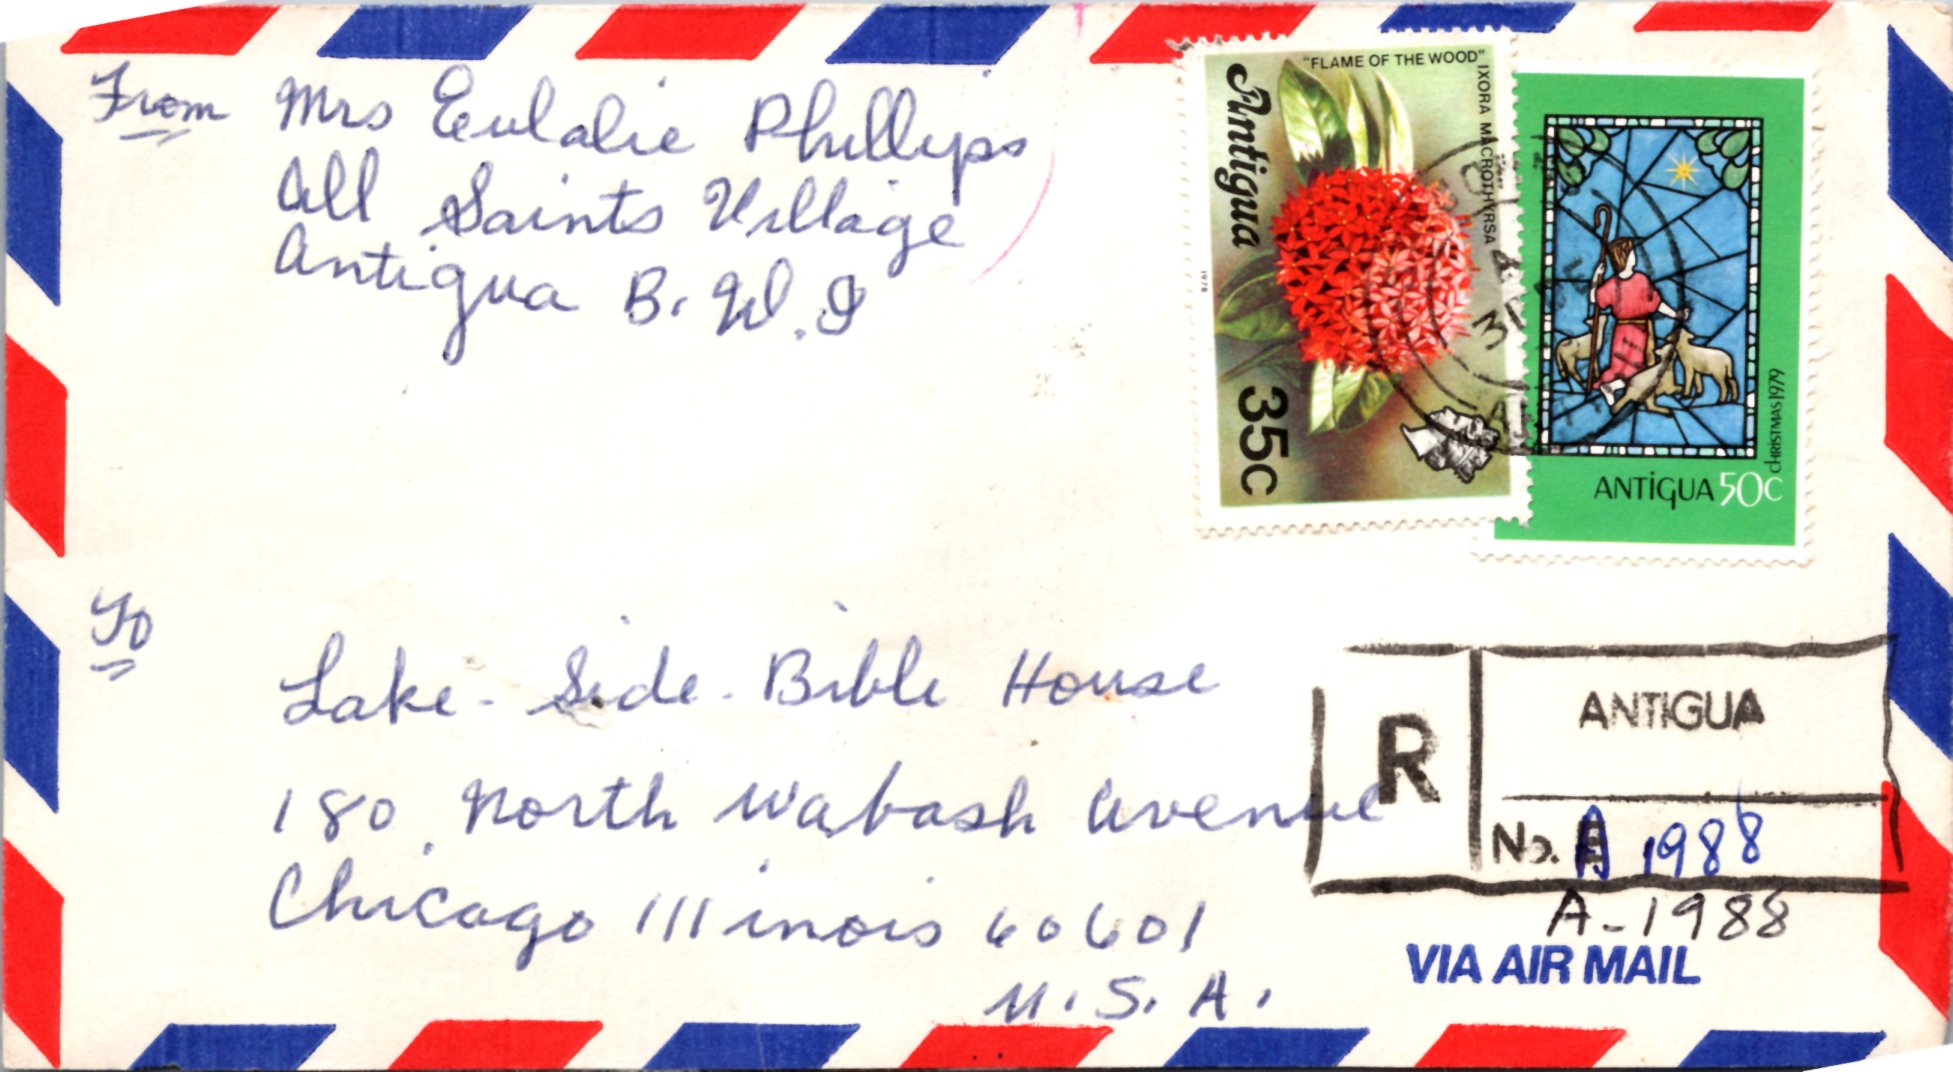 From Mrs Eulalie Phillips
All Saints Village
Antigua B. W. I
"FLAME OF THE WOOD"
IXORA MACROTHYRSA
Antigua
1978
35c
CHRISTMAS 1979
ANTIGUA 50c
To
Lake - Side - Bible House
180 North Wabash Avenue
Chicago Illinois 60601
U.S.A.
R
ANTIGUA
No. A 1988
A-1988
VIA AIR MAIL